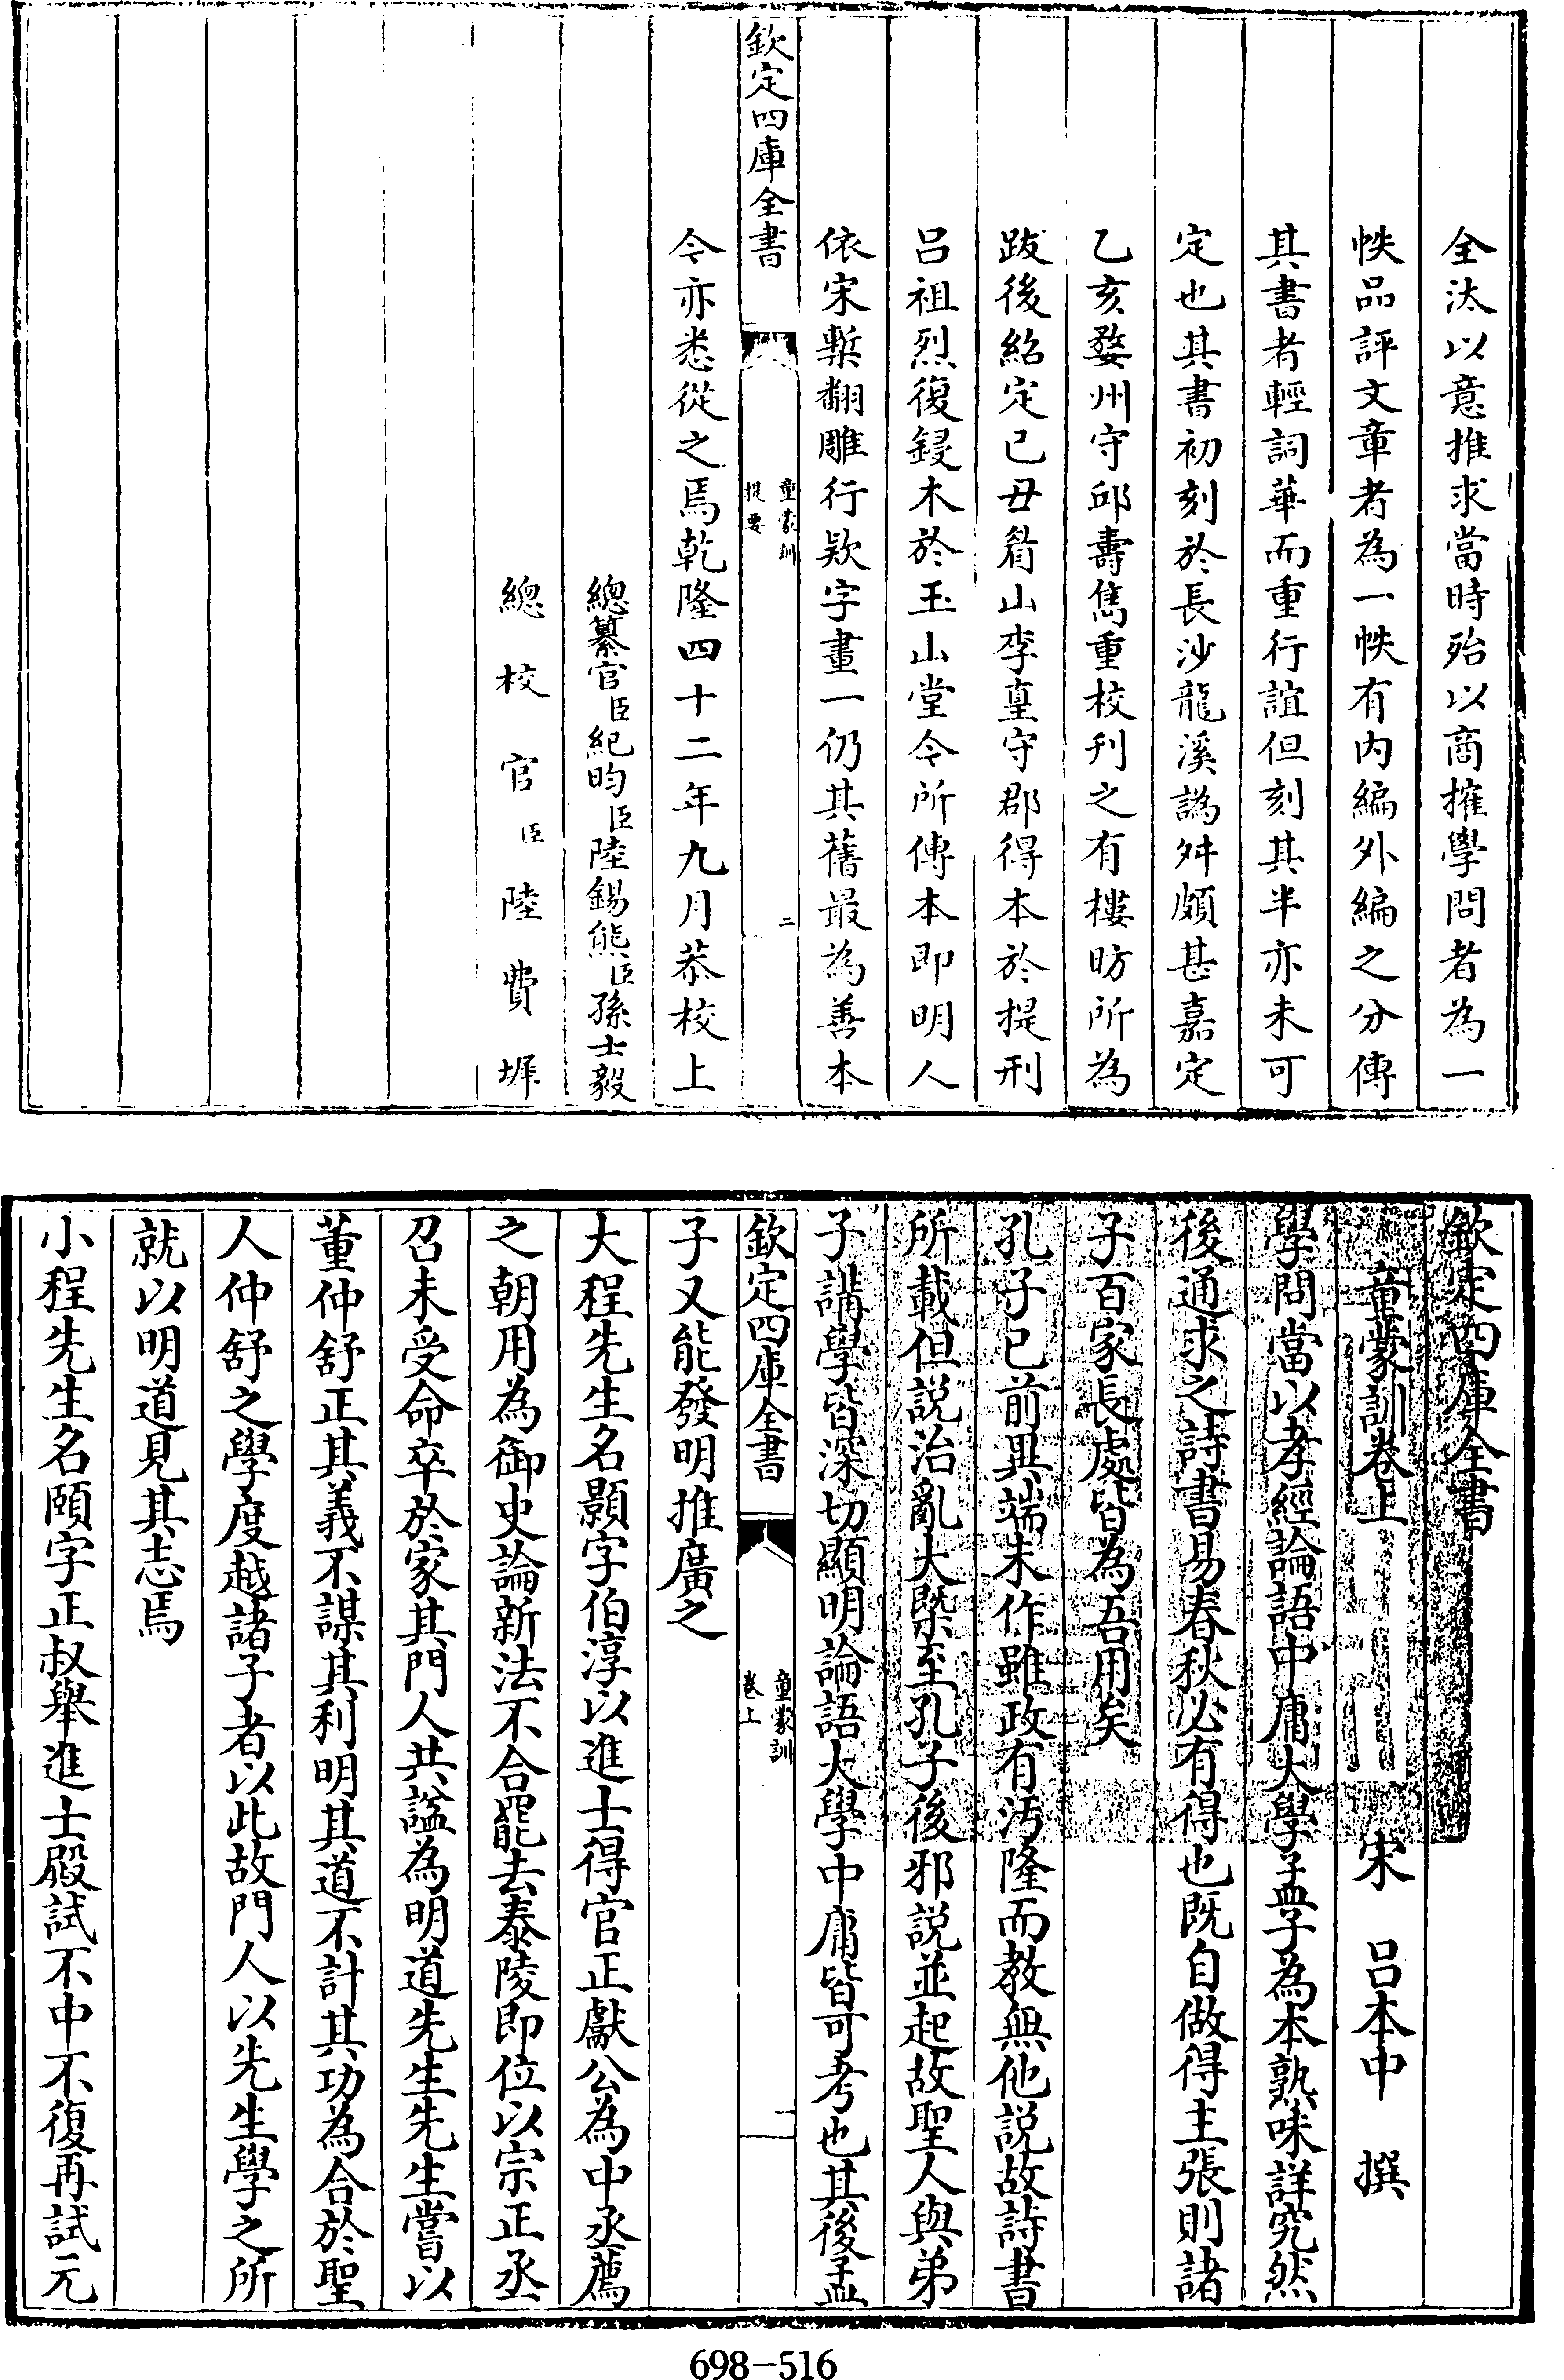 全汰以意推求當時殆以商搉學問者為一
帙品評文章者為一帙有内編外編之分傳
其書者輕詞華而重行誼但刻其半亦未可
定也其書初刻於長沙龍溪譌舛頗甚嘉定
乙亥婺州守邱壽雋重校刊之有樓昉所為
跋後紹定己丑眉山李𡌴守郡得本於提刑
呂祖烈復鋟木於玉山堂今所傳本即明人
依宋槧翻雕行欵字畫一仍其舊最為善本
欽定四庫全書
童蒙訓
提要
二
今亦悉從之焉乾隆四十二年九月恭校上
總纂官臣紀昀臣陸錫熊臣孫士毅
總校官臣陸費墀
欽定四庫全書
童蒙訓卷上
宋 呂本中 撰
學問當以孝經論語中庸大學孟子為本熟味詳究然
後通求之詩書易春秋必有得也既自做得主張則諸
子百家長處皆為吾用矣
孔子已前異端未作雖政有汚隆而教無他説故詩書
所載但説治亂大槩至孔子後邪説並起故聖人與弟
子講學皆深切顯明論語大學中庸皆可考也其後孟
欽定四庫全書
童蒙訓
卷上
一
子又能發明推廣之
大程先生名顥字伯淳以進士得官正獻公為中丞薦
之朝用為御史論新法不合罷去泰陵即位以宗正丞
召未受命卒於家其門人共諡為明道先生先生嘗以
董仲舒正其義不謀其利明其道不計其功為合於聖
人仲舒之學度越諸子者以此故門人以先生學之所
就以明道見其志焉
小程先生名頤字正叔舉進士殿試不中不復再試元
698-516